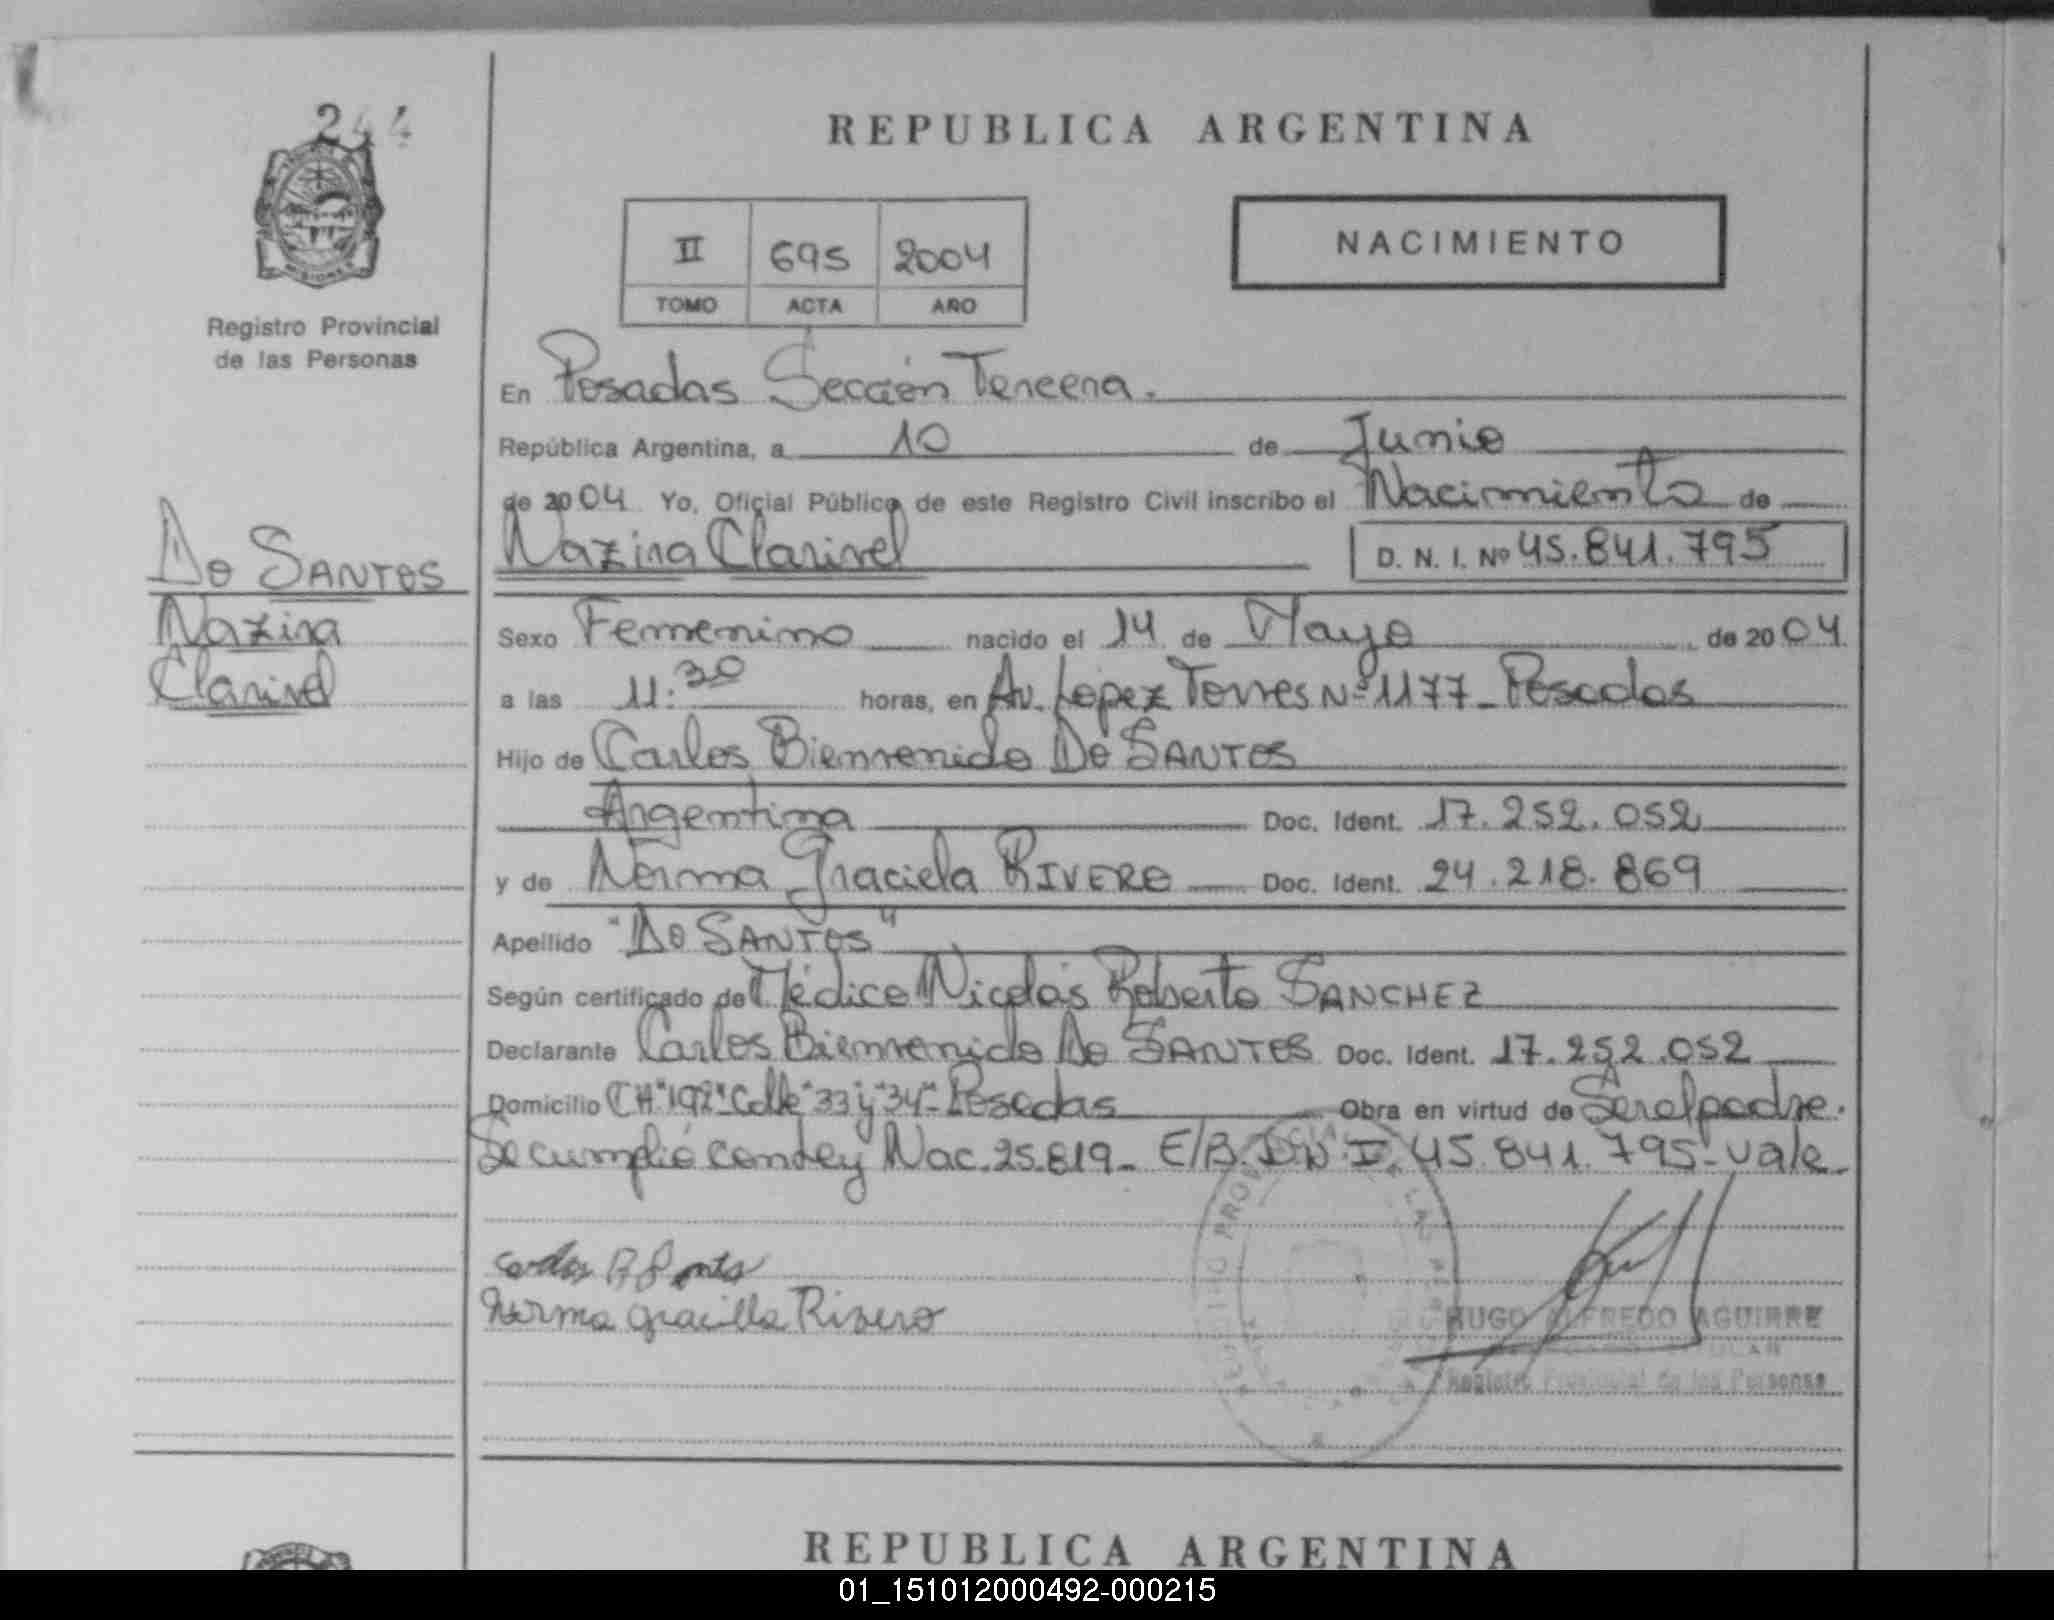 244
REPUBLICA ARGENTINA
MISIONES
Registro Provincial
de las Personas
II 695 2004
TOMO ACTA AÑO
NACIMIENTO
En Posadas Sección Tercera.
República Argentina, a 10 de Junio
de 2004 Yo, Oficial Público de este Registro Civil inscribo el Nacimiento de
Nazira Clarivel D. N. I. Nº 45.841.795
DO SANTOS
Nazira
Clarivel
Sexo Femenino nacido el 14 de Mayo de 2004.
a las 11.30 horas, en Av. Lopez Torres Nº 1177 - Posadas
Hijo de Carlos Bienvenido DO SANTOS
Argentina Doc. Ident. 17.252.052
y de Norma Graciela RIVERO Doc. Ident. 24.218.869
Apellido "DO SANTOS"
Según certificado de Médico Nicolás Roberto SANCHEZ
Declarante Carlos Bienvenido Do SANTOS Doc. Ident. 17.252.052
Domicilio CH "192" Calle "33 y "34" - Posadas Obra en virtud de Ser el padre.
Se cumplió con Ley Nac. 25.819 - E/B. D.N.I. 45.841.795 - vale
Norma gracilla Rivero
HUGO ALFREDO AGUIRRE
Registro Provincial de las Personas
REPUBLICA ARGENTINA
01_151012000492-000215